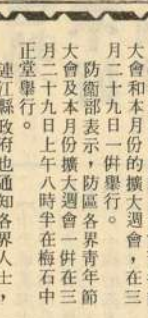 大會和本月份的擴大週會，在三
月二十九日一併舉行。
防衛部表示，防區各界青年節
大會及本月份擴大週會一併在三
月二十九日上午八時半在梅石中
正堂舉行。
連江縣政府也通知各界人士，